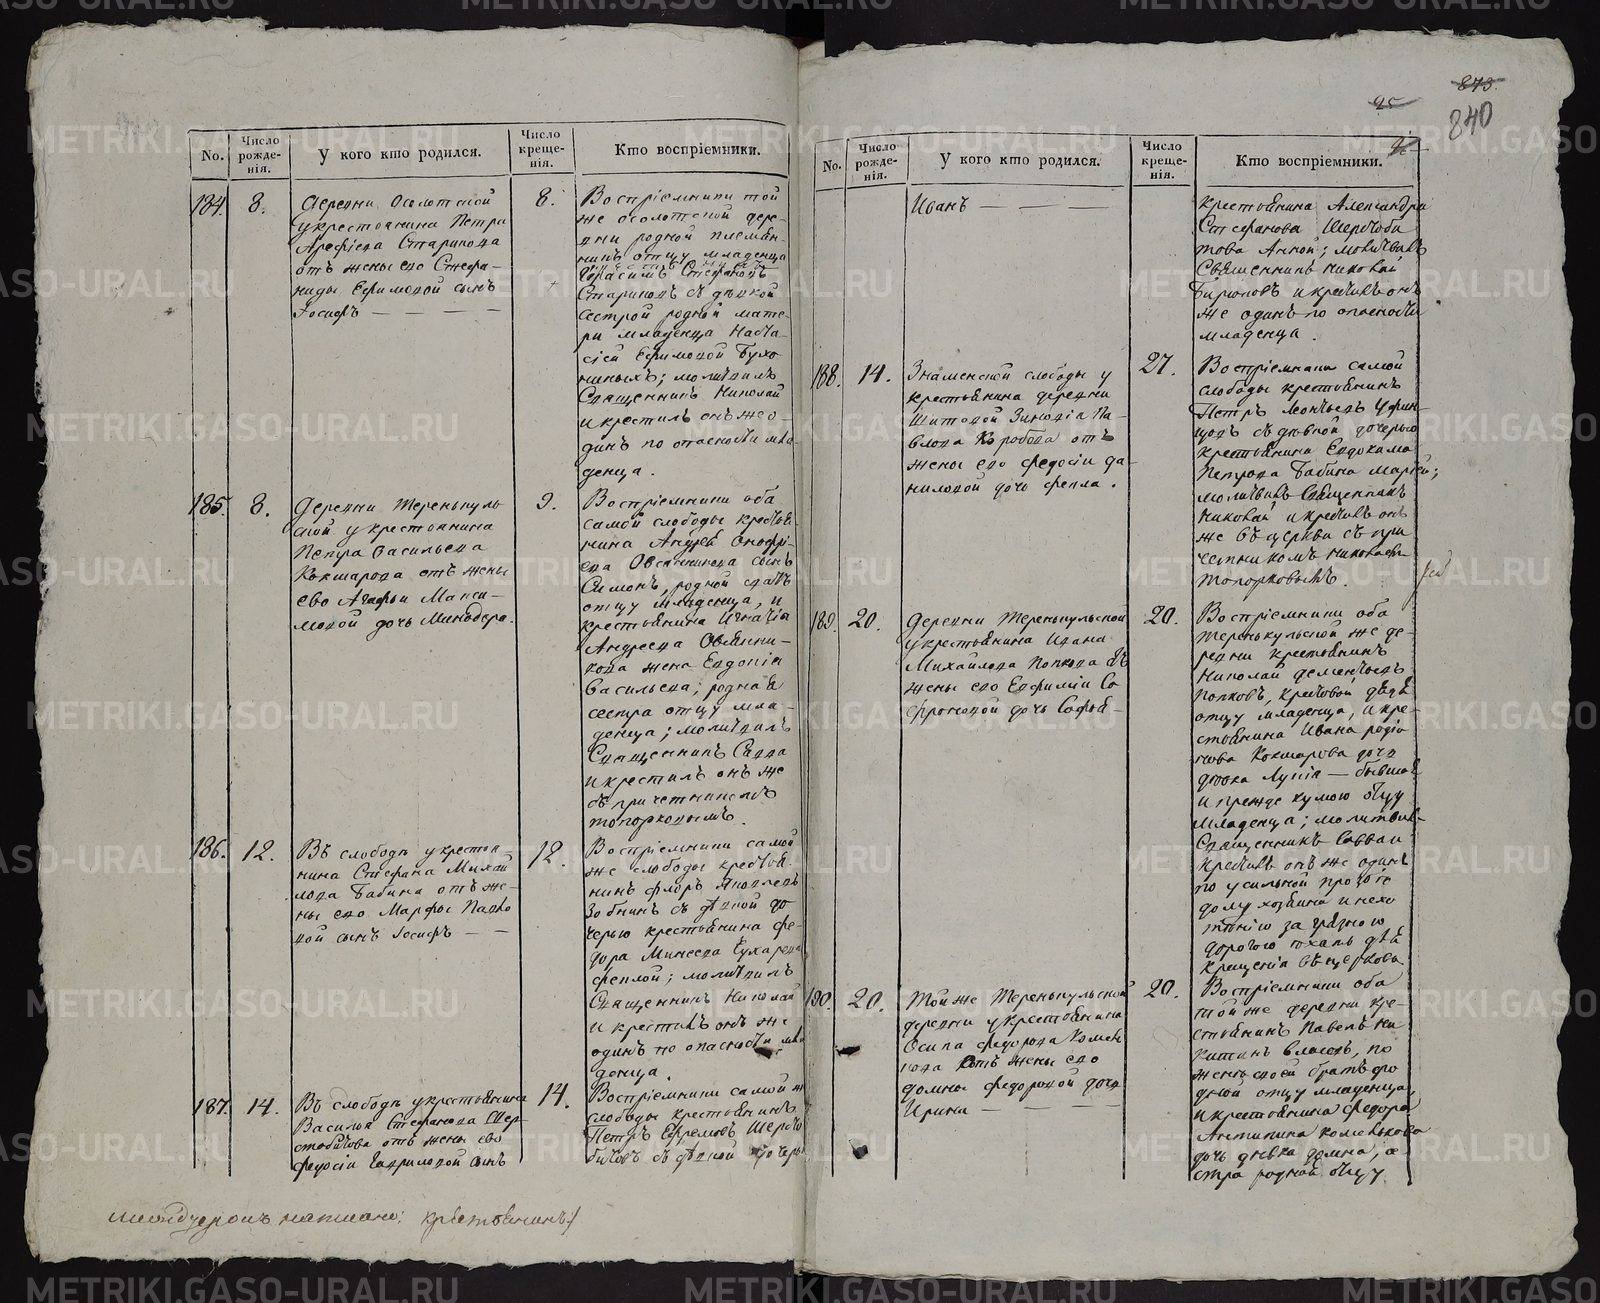 No.
Число рожденія.
У кого кто родился.
Число крещенія.
Кто воспріемники.
184. 8.
Деревни Осолотской
у крестьянина Петра
Арефіева Старикова
отъ жены его Стефа-
ниды Ефимовой сынъ
Іосифъ — — — —
8.
Воспріемники той
же Осолотской дере-
вни родной племян-
никъ отцу младенца
Герасимъ Стефановъ
Стариковъ съ дѣвкой
сестрой родной мате-
ри младенца Наста-
сіей Ефимовой Бухо-
ниныхъ; молитвилъ
Священникъ Николай
и крестилъ онъ же о-
динъ по опасности мла-
денца.
185. 8.
Деревни Тереньkуль-
ской у крестьянина
Петра Васильева
Кокшарова отъ жены
его Агафьи Макси-
мовой дочь Минодора.
9.
Воспріемники оба
самой слободы крестья-
нина Андрей Онофрі-
ева Овсянникова сынъ
Симонъ, родной сватъ
отцу младенца, и
крестьянина Игнатія
Андреева Овсянни-
кова жена Евдокія
Васильева; родная
сестра отцу мла-
денца; молитвилъ
Священникъ Савва
и крестилъ онъ же
съ причетникомъ
Топорковымъ.
186. 12.
Въ слободѣ у крестья-
нина Стефана Михай-
лова Бабина отъ же-
ны его Марфы Павло-
вой сынъ Іосифъ — —
12.
Воспріемники самой
же слободы крестья-
нинъ Флоръ Яковлевъ
Зобнинъ съ дѣвкой до-
черью крестьянина Фе-
дора Минеева Сухарева
Феклой; молитвилъ
Священникъ Николай
и крестилъ онъ же
одинъ по опасности мла-
денца.
187. 14.
Въ слободѣ у крестьянина
Василья Стефанова Шер-
стобитова отъ жены его
Федосіи Гавриловой сынъ
14.
Воспріемники самой же
слободы крестьянинъ
Петръ Ефремовъ Шерсто-
битовъ съ дѣвкой дочерью
написано: крестьянинъ
873.
95
840
No.
Число рожденія.
У кого кто родился.
Число крещенія.
Кто воспріемники.
Иванъ — — — —
крестьянина Александра
Стефанова Шерстоби-
това Анной; молитвилъ
Священникъ Николай
Бирюковъ и крестилъ онъ
же одинъ по опасности
младенца.
188. 14.
Знаменской слободы у
крестьянина деревни
Шитовой Зиновія Па-
влова Коробова отъ
жены его Федосіи Да-
ниловой дочь Фекла.
27.
Воспріемники самой
слободы крестьянинъ
Петръ Леонтьевъ Уфин-
цовъ съ дѣвкой дочерью
крестьянина Евдокима
Петрова Бабина Маріей;
молитвилъ Священникъ
Николай и крестилъ онъ
же въ церкви съ при-
четникомъ Николаемъ
Топорковымъ.
189. 20.
Деревни Теренькульской
у крестьянина Ивана
Михайлова Попкова отъ
жены его Евфиміи Со-
фроновой дочь Софья —
20.
Воспріемники оба
Теренькульской же де-
ревни крестьянинъ
Николай Дементьевъ
Попковъ, крестовой дядя
отцу младенца, и кре-
стьянина Ивана Родіо-
нова Кокшарова дочь
дѣвка Лукія — бывшая
и прежде кумою отцу
младенца; молитвилъ
Священникъ Савва и
крестилъ онъ же одинъ
по усильной прозьбѣ
дому хозяина и нехо-
тѣнію за грязною
дорогою ѣхать для
крещенія въ церковь.
190. 20.
Той же Теренькульской
деревни у крестьянина
Осипа Федорова Комень-
кова отъ жены его
Домны Федоровой дочь
Ирина — — — —
20.
Воспріемники оба
той же деревни кре-
стьянинъ Павелъ Ни-
китинъ Власовъ, по
женѣ своей братъ ро-
дной отцу младенца,
и крестьянина Федора
Антипина Коменькова
дочь дѣвка Домна, се-
стра родная отцу